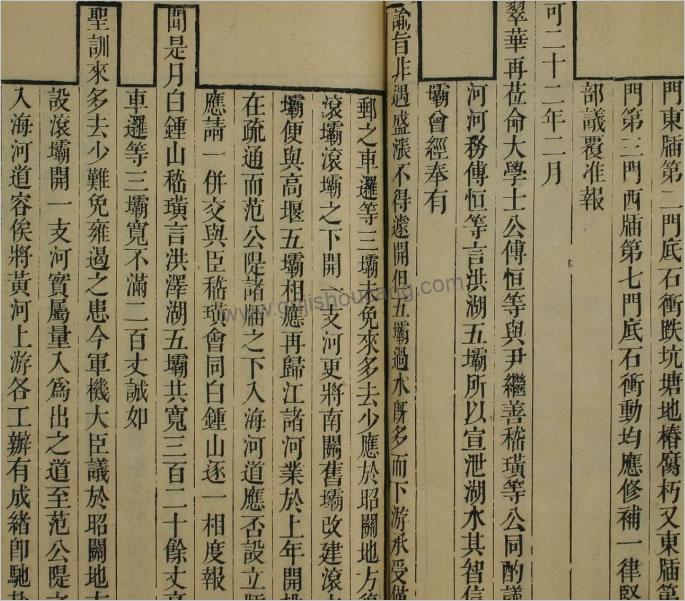 門東牐第二門底石衝跌坑塘地樁腐朽又東牐第
門第三門西牐第七門底石衝動均應修補一律堅
部議覆准報
可二十二年二月
翠華再莅命大學士公傅恒等與尹繼善嵇璜等公同酌議
河河務傅恒等言洪湖五壩所以宣泄湖水其智信
壩曾經奉有
諭旨非遇盛漲不得遽開但五壩過水旣多而下游承受僅
郵之車邏等三壩未免來多去少應於昭關地方
滾壩滾壩之下開一支河更將南關舊壩改建滾
壩便與高堰五壩相應再歸江諸河業於上年開
在疏通而范公隄諸牐之下入海河道應否設立
應請一併交與臣嵇璜會同白鍾山逐一相度報
聞是月白鍾山嵇璜言洪澤湖五壩共寬三百二十餘丈高
車邏等三壩寬不滿二百丈誠如
聖訓來多去少難免雍遏之患今軍機大臣議於昭關地
設滾壩開一支河實屬量入爲出之道至范公隄之
入海河道容俟將黃河上游各工辦有成緒卽馳
www.gujishoucang.com